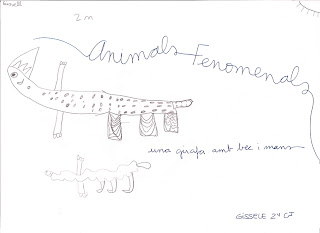 2 m
Animals Fenomenals
una girafa amb bec i mans
GISSELE 2n CT